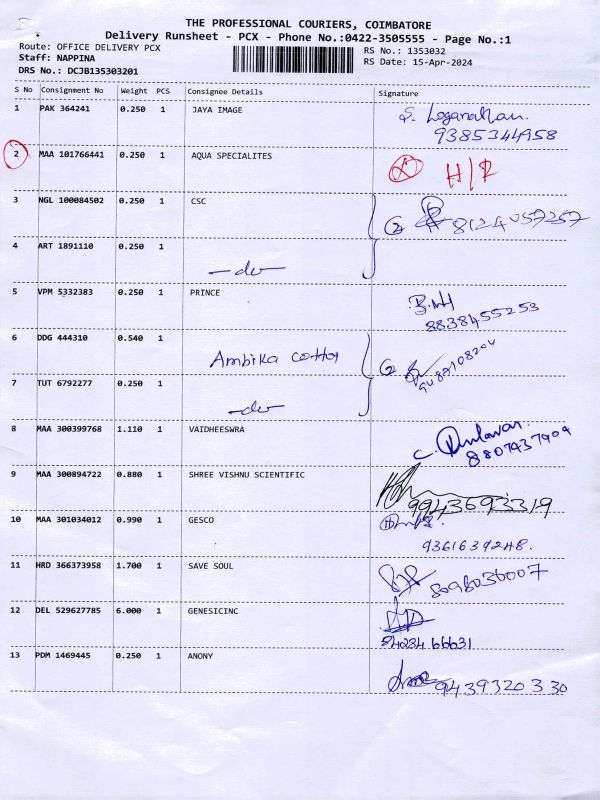 THE PROFESSIONAL COURIERS, COIMBATORE
Delivery Runsheet - PCX - Phone No.:0422-3505555 - Page No.:1
Route: OFFICE DELIVERY PCX RS No.: 1353032
Staff: NAPPINA RS Date: 15-Apr-2024
DRS No.: DCJB135303201
S No Consignment No Weight PCS Consignee Details Signature
1 PAK 364241 0.250 1 JAYA IMAGE S. Loganathan.
9385344958
2 MAA 101766441 0.250 1 AQUA SPECIALITES
3 NGL 100084502 0.250 1 CSC 8124057257
4 ART 1891110 0.250 1
-do-
5 VPM 5332383 0.250 1 PRINCE
8838455253
6 DDG 444310 0.540 1
Ambika 9487108204
7 TUT 6792277 0.250 1
-do-
8 MAA 300399768 1.110 1 VAIDHEESWRA
8807437904
9 MAA 300894722 0.880 1 SHREE VISHNU SCIENTIFIC
9943693319
10 MAA 301034012 0.990 1 GESCO
9361639248.
11 HRD 366373958 1.700 1 SAVE SOUL 8098036007
12 DEL 529627785 6.000 1 GENESICINC
13 PDM 1469445 0.250 1 ANONY 9439320330